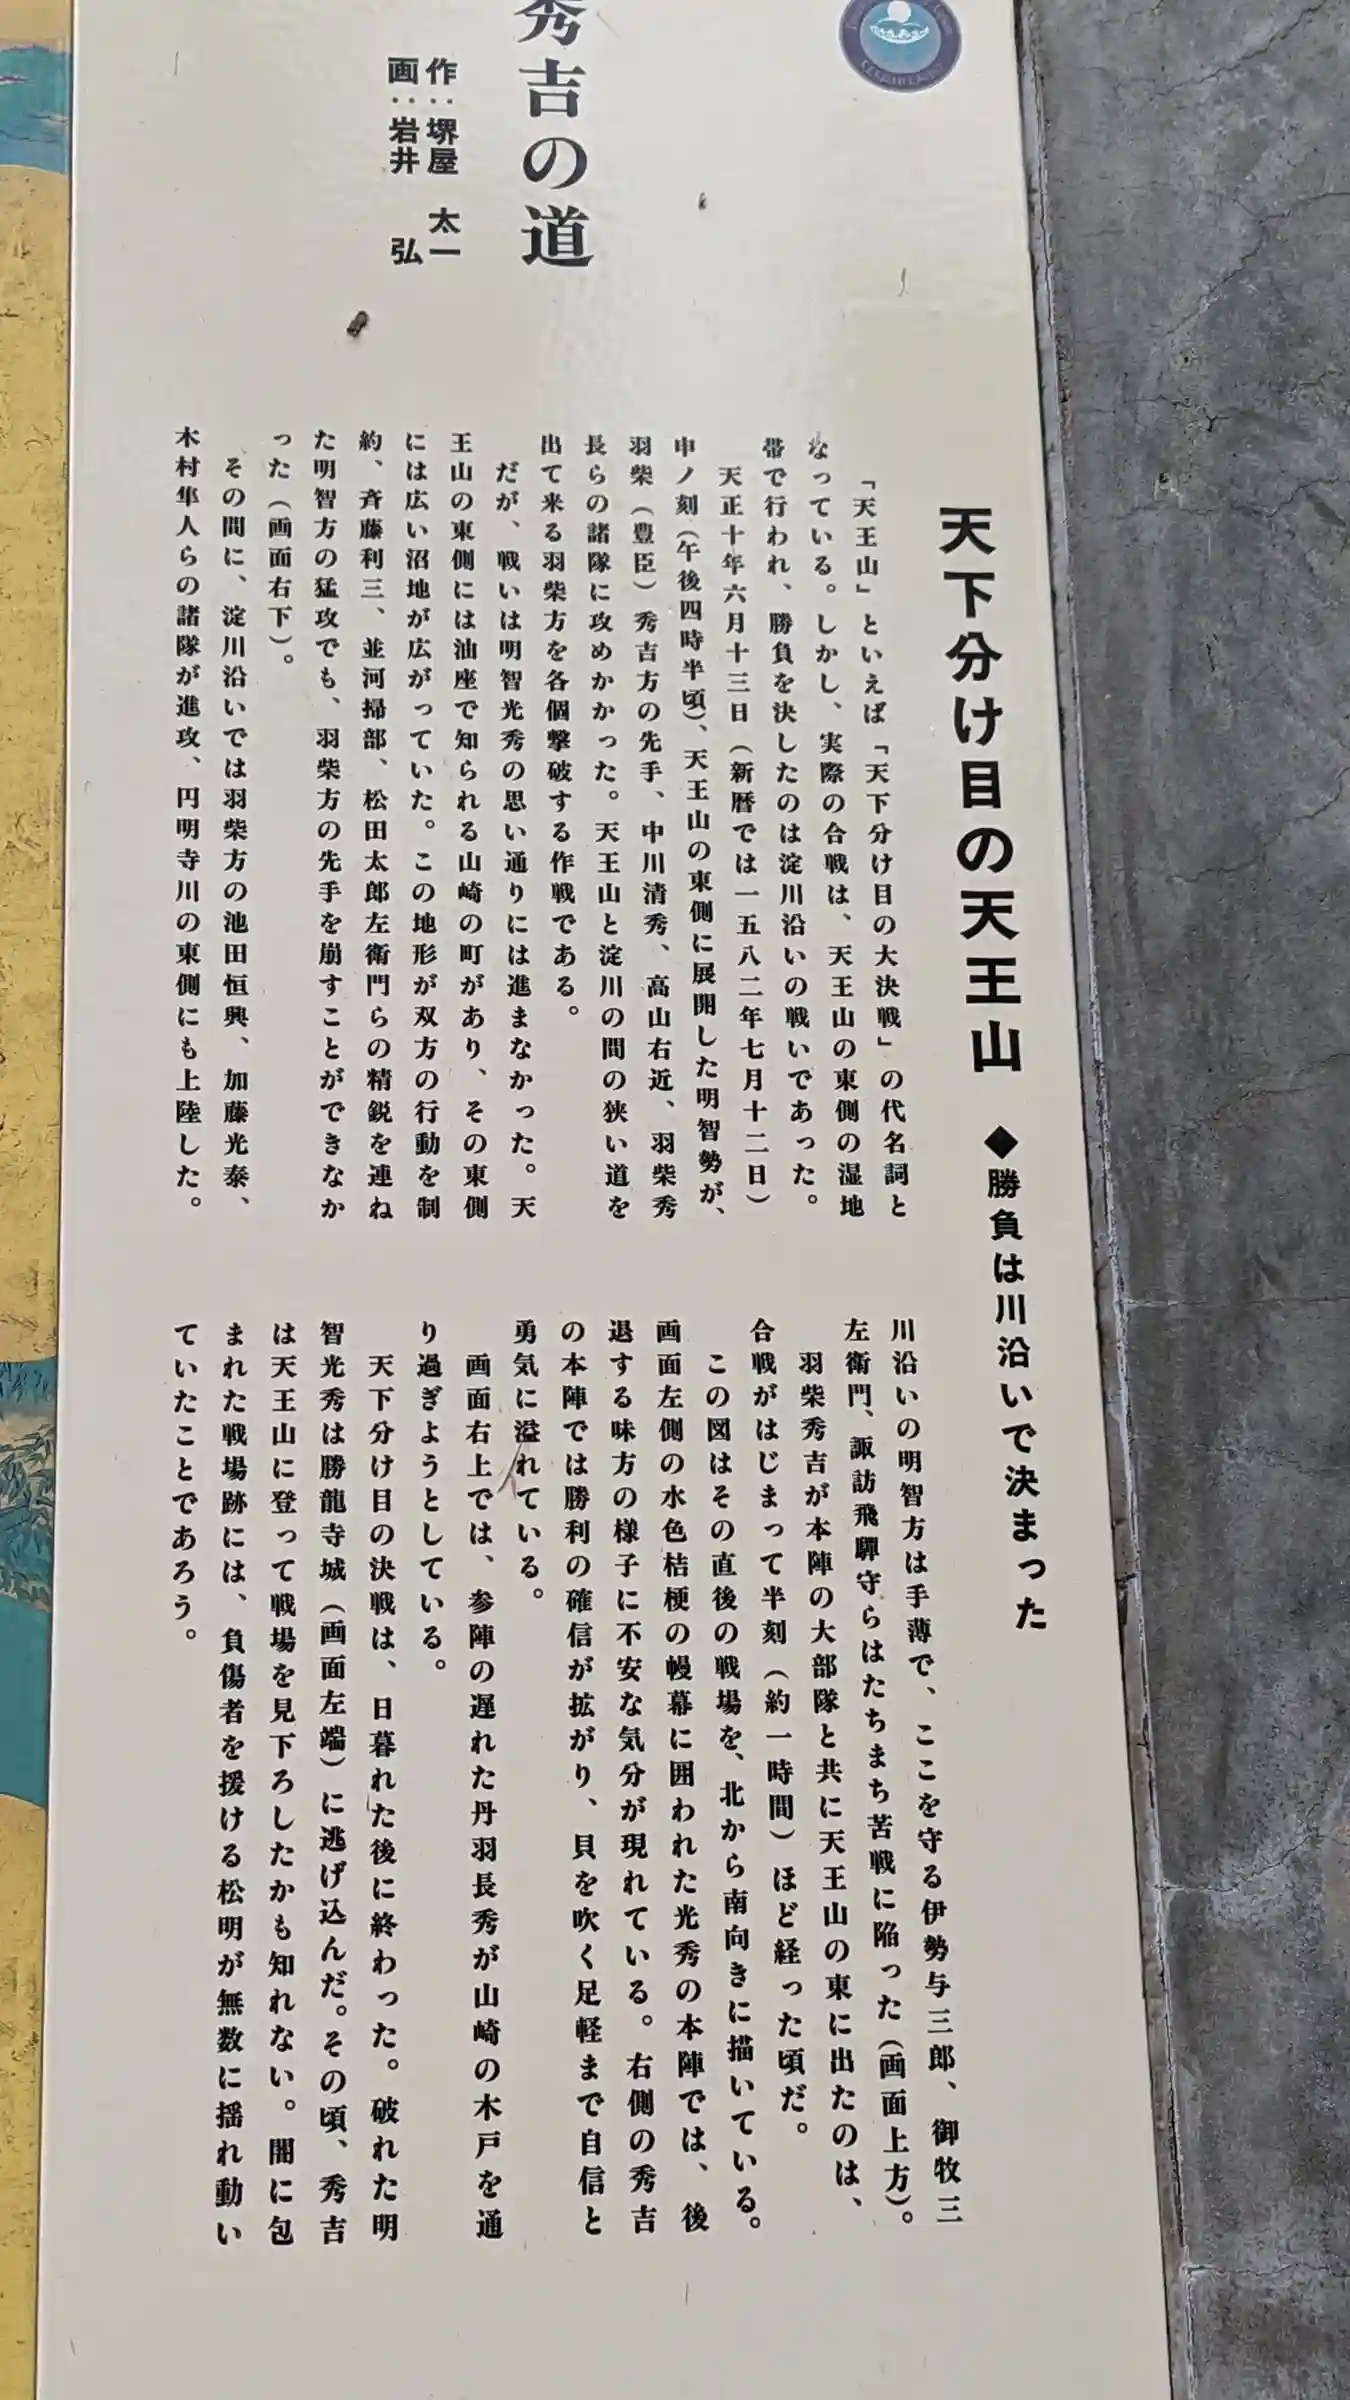 天下分け目の天王山 ◆勝負は川沿いで決まった
「天王山」といえば「天下分け目の大決戦」の代名詞と
なっている。しかし、実際の合戦は、天王山の東側の湿地
帯で行われ、勝負を決したのは淀川沿いの戦いであった。
天正十年六月十三日（新暦では一五八二年七月十二日）
申ノ刻（午後四時半頃）、天王山の東側に展開した明智勢が、
羽柴（豊臣）秀吉方の先手、中川清秀、高山右近、羽柴秀
長らの諸隊に攻めかかった。天王山と淀川の間の狭い道を
出て来る羽柴方を各個撃破する作戦である。
だが、戦いは明智光秀の思い通りには進まなかった。天
王山の東側には油座で知られる山崎の町があり、その東側
には広い沼地が広がっていた。この地形が双方の行動を制
約、斉藤利三、並河掃部、松田太郎左衛門らの精鋭を連ね
た明智方の猛攻でも、羽柴方の先手を崩すことができなか
った（画面右下）。
その間に、淀川沿いでは羽柴方の池田恒興、加藤光泰、
木村隼人らの諸隊が進攻、円明寺川の東側にも上陸した。
川沿いの明智方は手薄で、ここを守る伊勢与三郎、御牧三
左衛門、諏訪飛騨守らはたちまち苦戦に陥った（画面上方）。
羽柴秀吉が本陣の大部隊と共に天王山の東に出たのは、
合戦がはじまって半刻（約一時間）ほど経った頃だ。
この図はその直後の戦場を、北から南向きに描いている。
画面左側の水色桔梗の幔幕に囲われた光秀の本陣では、後
退する味方の様子に不安な気分が現れている。右側の秀吉
の本陣では勝利の確信が拡がり、貝を吹く足軽まで自信と
勇気に溢れている。
画面右上では、参陣の遅れた丹羽長秀が山崎の木戸を通
り過ぎようとしている。
天下分け目の決戦は、日暮れた後に終わった。破れた明
智光秀は勝龍寺城（画面左端）に逃げ込んだ。その頃、秀吉
は天王山に登って戦場を見下ろしたかも知れない。闇に包
まれた戦場跡には、負傷者を援ける松明が無数に揺れ動い
ていたことであろう。
秀吉の道
作：堺屋 太一
画：岩井 弘